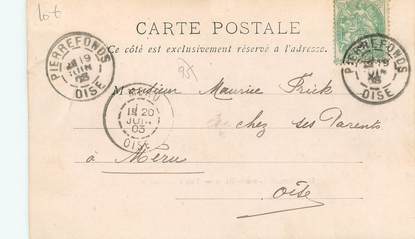 lot
CARTE POSTALE
Ce côté est exclusivement réservé à l'adresse.
PIERREFONDS
19
JUIN
03
OISE
PIERREFONDS
19
JUIN
03
OISE
Monsieur Maurice Frick
chez ses Parents
à Méru
Oise
20
JUIN
03
OISE